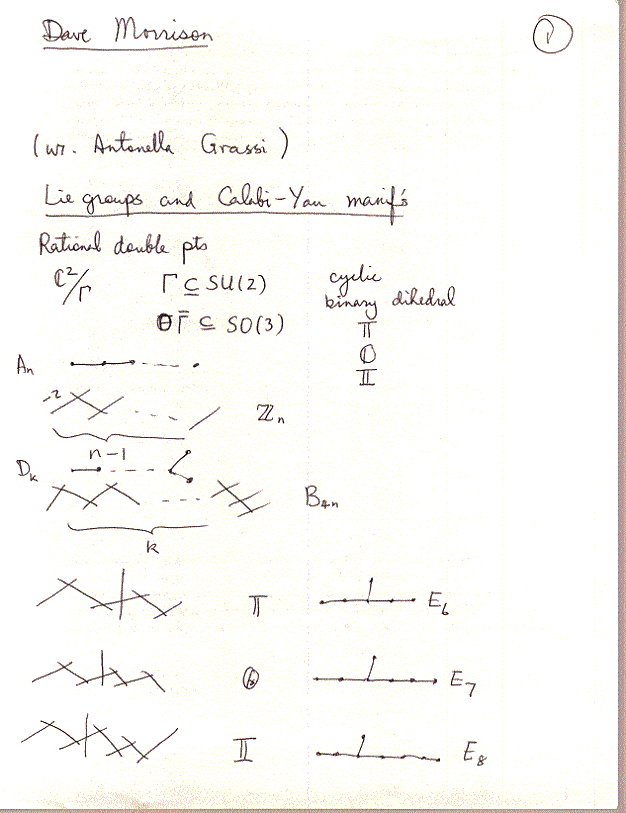 Dave Morrison
1
(w. Antonella Grassi)
Lie groups and Calabi-Yau manif's
Rational double pts
ℂ²/Γ Γ ⊆ SU(2) cyclic
binary dihedral
Γ̄ ⊆ SO(3) 𝕋
𝕆
𝕀
Aₙ
-2 ℤₙ
n-1
Dₖ
B₄ₙ
k
𝕋 E₆
𝕆 E₇
𝕀 E₈